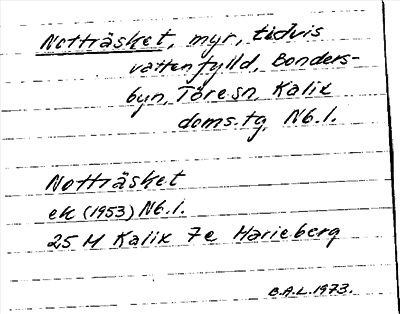 Notträsket, myr, tidvis
vattenfylld, Bonders-
byn, Töre sn, Kalix
doms. tg, Nb.l.
Notträsket
ek (1953) Nb.l.
25 M Kalix 7e Marieberg
B.A.L. 1973.